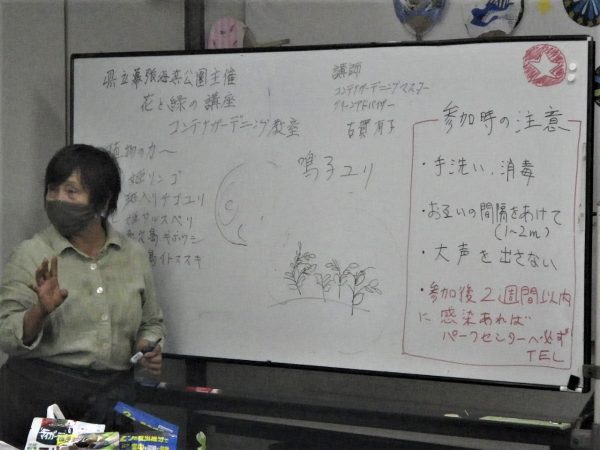 県立幕張海浜公園主催
花と緑の講座
コンテナガーデニング教室
講師
コンテナガーデニングマスター
グリーンアドバイザー
古賀有子
植物の力〜
姫リンゴ
斑入ヘリテゴユリ
鳴子ユリ
参加時の注意
・手洗い、消毒
・お互いの間隔をあけて
(1〜2m)
・大声を出さない
・参加後2週間以内
に感染あれば
パークセンターへ必ず
TEL